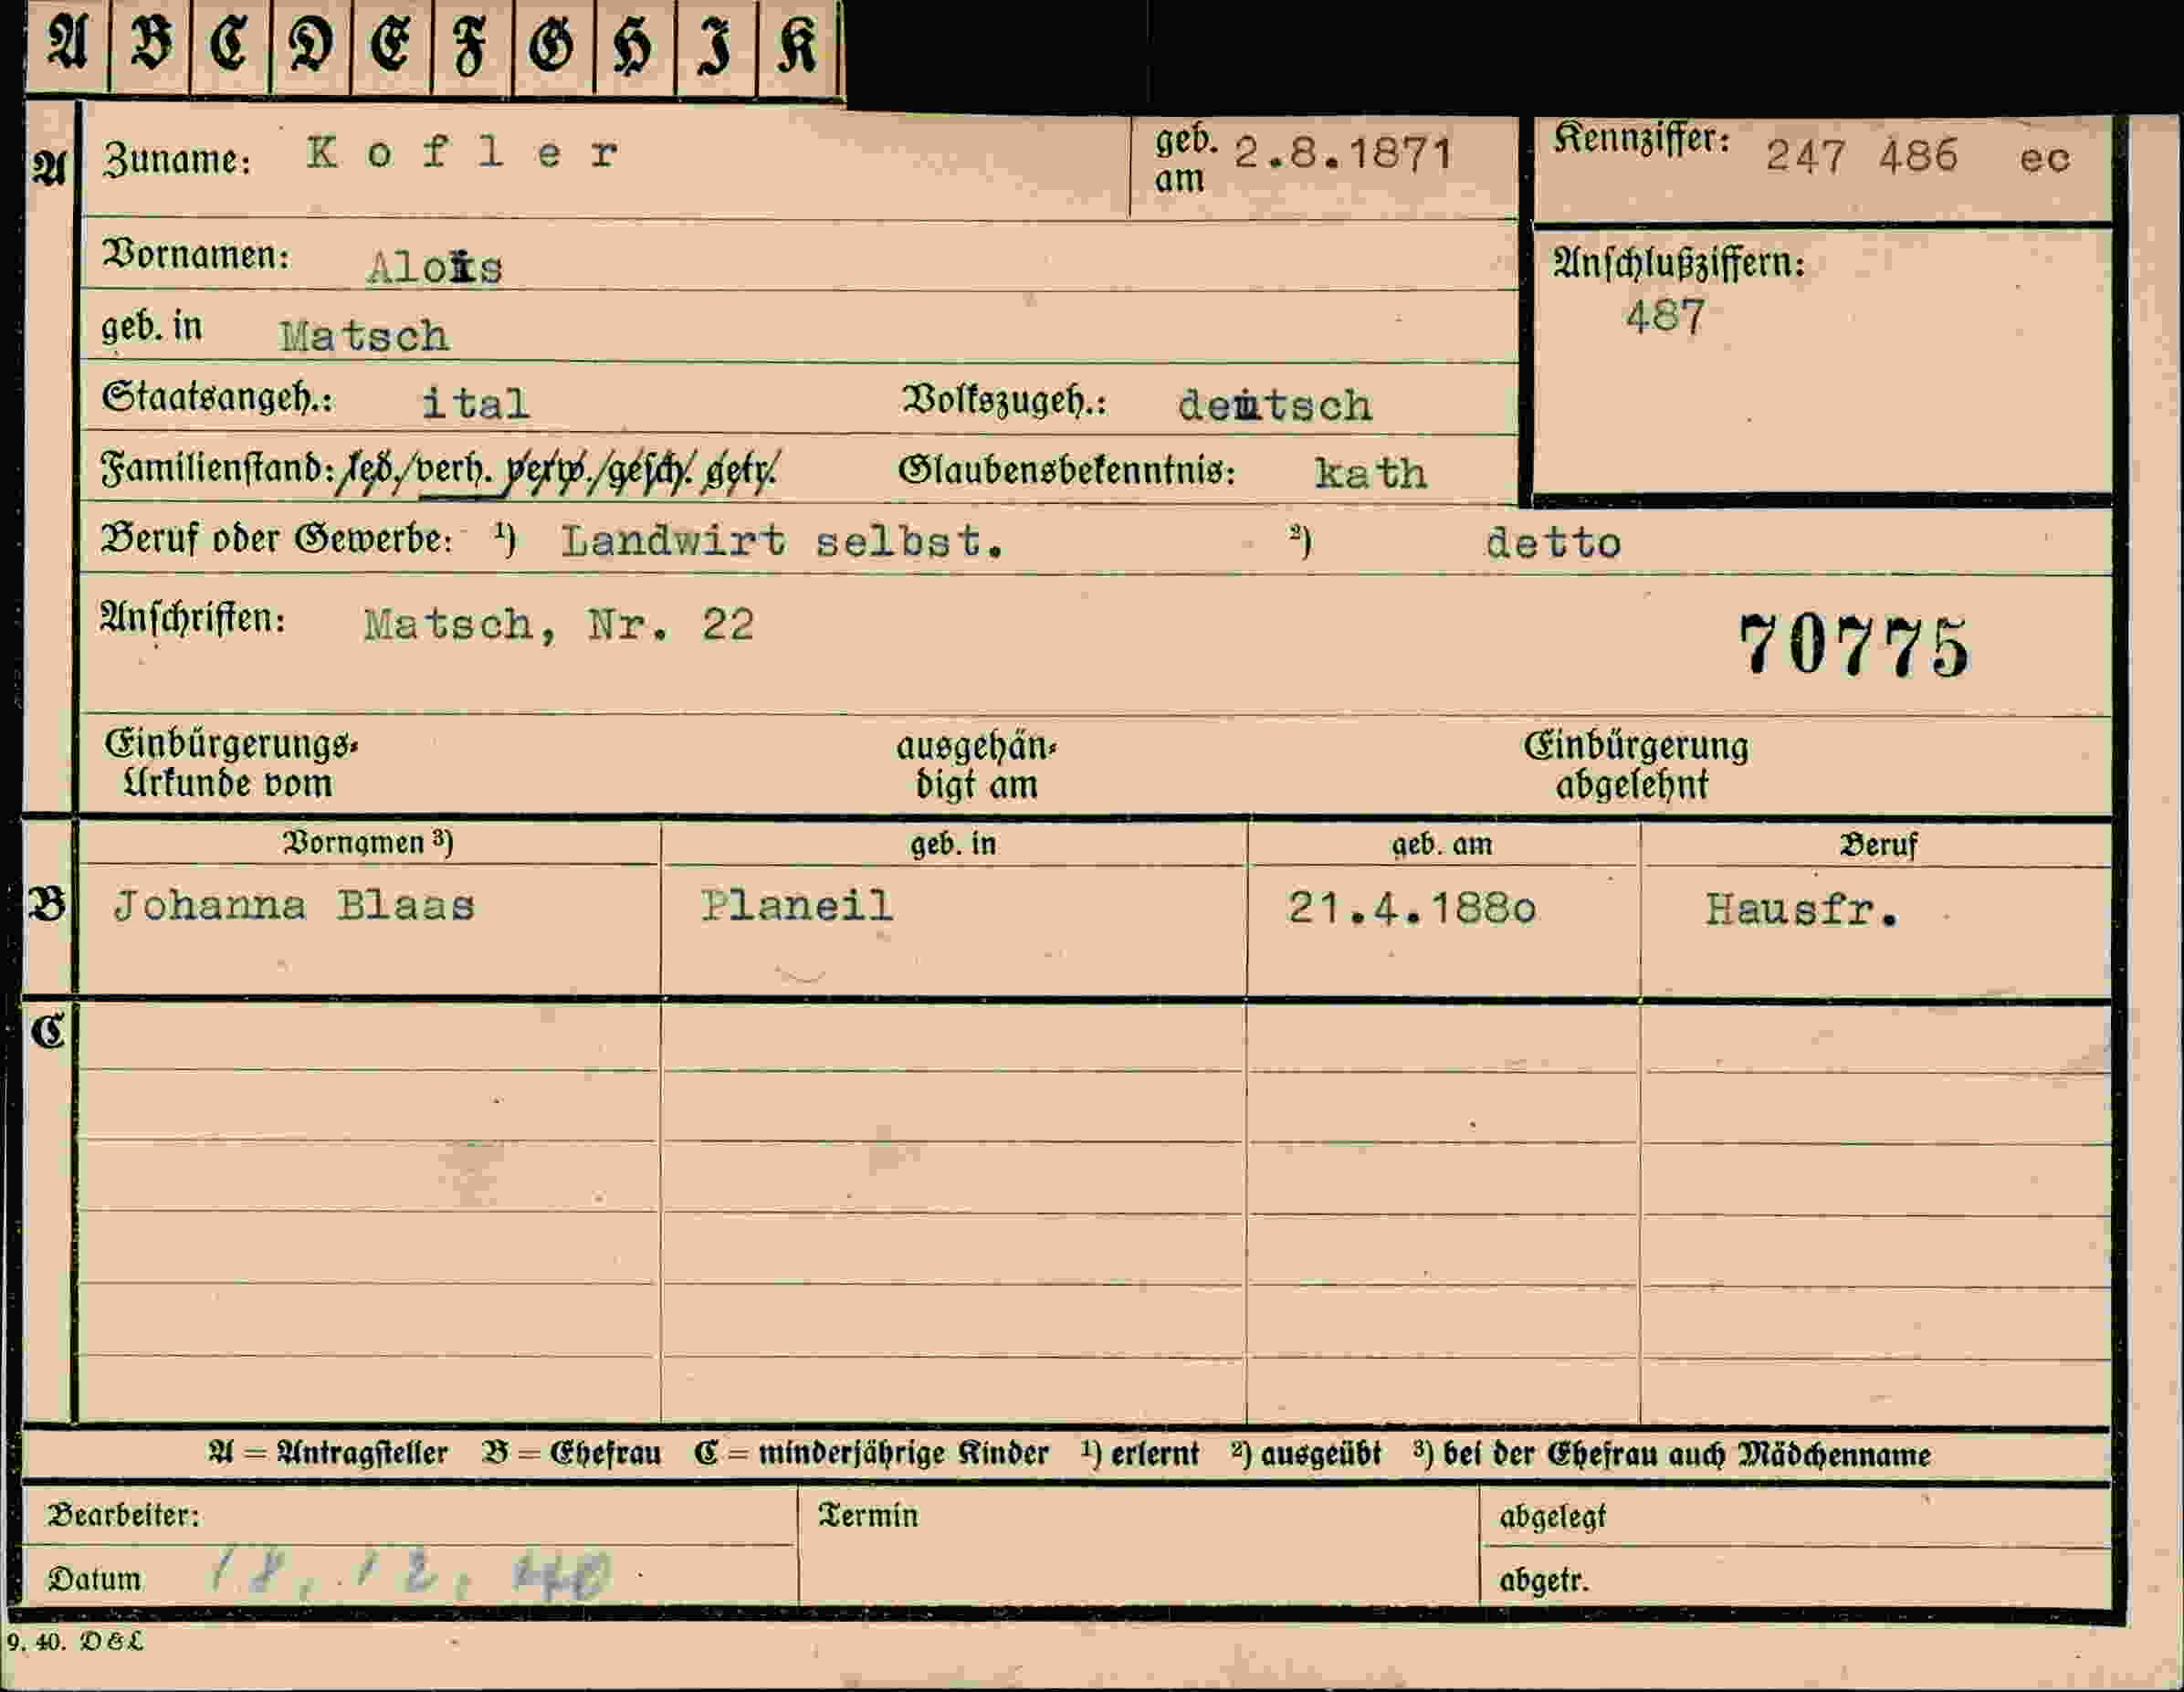 A B C D E F G H I K
A Zuname: Kofler geb. am 2.8.1871 Kennziffer: 247 486 ec
Vornamen: Alois Anschlußziffern:
487
geb. in Matsch
Staatsangeh.: ital Volkszugeh.: deutsch
Familienstand: led. verh. verw. gesch. getr. Glaubensbekenntnis: kath
Beruf oder Gewerbe: ¹) Landwirt selbst. ²) detto
Anschriften: Matsch, Nr. 22 70775
Einbürgerungs- ausgehän- Einbürgerung
Urkunde vom digt am abgelehnt
Vornamen ³) geb. in geb. am Beruf
B Johanna Blaas Planeil 21.4.188o Hausfr.
C
A = Antragsteller B = Ehefrau C = minderjährige Kinder ¹) erlernt ²) ausgeübt ³) bei der Ehefrau auch Mädchenname
Bearbeiter: Termin abgelegt
Datum 18. 12. 40 abgetr.
9. 40. D & L